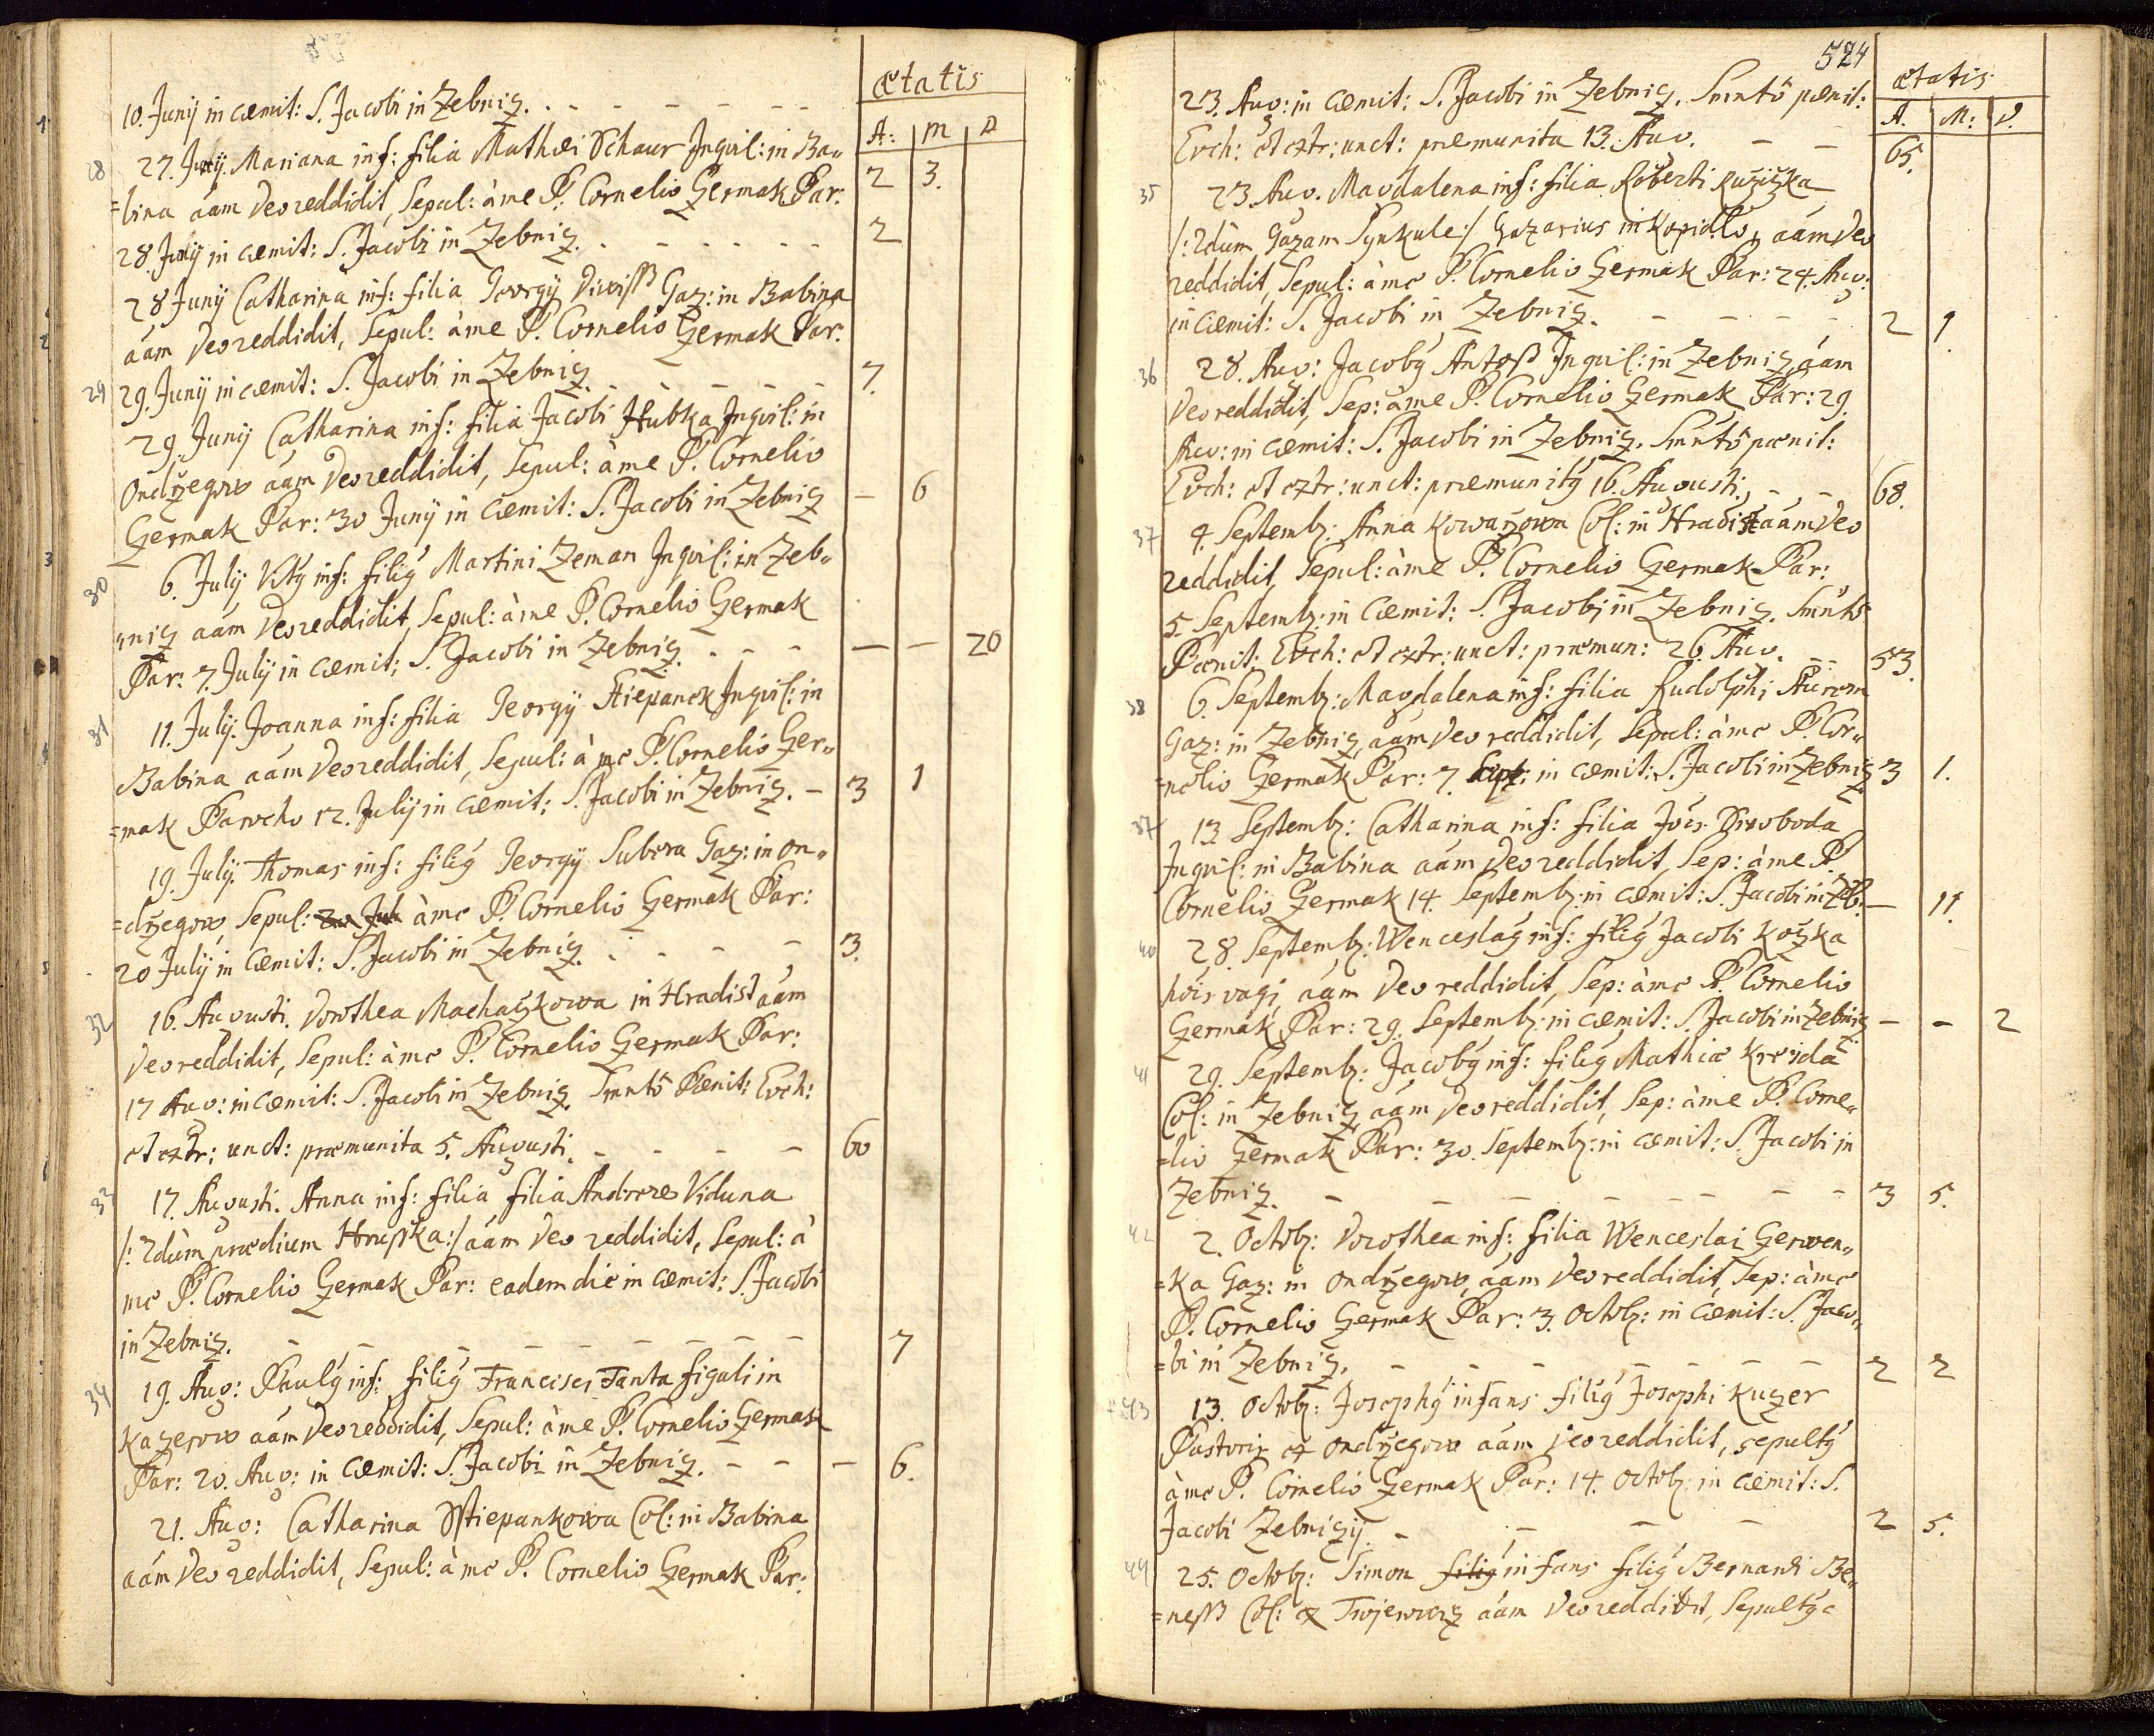 ætatis
A: M D
10. Junij in cæmit: S. Jacobi in Žebniz.
28 27. Junij. Mariana inf: filia Mathæi Schaur Inquil: in Ba„ 2 3.
=bina aām Deo reddidit, Sepul: à me P. Cornelio Czermak Par:
28. Junij in cæmit: S. Jacobi in Žebniz. 2
28 Junij Catharina inf: filia Georgij Diwiss Gaz: in Babina
aām Deo reddidit, Sepul: à me P. Cornelio Czermak Par.
29 29. Junij in cæmit: S. Jacobi in Žebniz. 7.
29. Junij Catharina inf: filia Jacobi Hubka Inquil: in
Ondržegow aām Deo reddidit, Sepul: à me P. Cornelio
Czermak Par: 30 Junij in cæmit: S. Jacobi in Žebniz – 6
30 6. Julij Vitq inf: filiq Martini Zeman Inquil: in Žeb„
„niz aām Deo reddidit, Sepul: à me P. Cornelio Czermak
Par: 7. Julij in cæmit: S. Jacobi in Žebniz. – – 20
31 11. Julij. Joanna inf: filia Georgij Stiepanek Inquil: in
Babina aām Deo reddidit, Sepul: à me P. Cornelio Czer„
=mak Parocho 12. Julij in cæmit: S. Jacobi in Žebniz. – 3 1
19. Julij. Thomas inf: filiq Georgij Subera Gaz: in On„
=držegow, Sepul: 20 Jul à me P. Cornelio Czermak Par:
20 Julij in cæmit: S. Jacobi in Žebniz. 3.
32 16. Augusti. Dorothea Machaczkowa in Hradist aām
Deo reddidit, Sepul: à me P. Cornelio Czermak Par:
17 Aug: in cæmit: S. Jacobi in Žebniz. Smntō Pænit: Euch:
et extr: unct: præmunita 5. Augusti. 60
33 17. Augusti. Anna inf: filia filia Andreæ Viduna
/: 2dùm prædium Hrusska :/ aām Deo reddidit, Sepul: à
me P. Cornelio Czermak Par: eadem die in cæmit: S. Jacobi
in Žebniz. 7
34 19. Aug: Paulq inf: filiq Francisci Fanta figuli in
Kazerow aām Deo reddidit, Sepul: à me P. Cornelio Czermak
Par: 20. Aug: in cæmit: S. Jacobi in Žebniz. – 6.
21. Aug: Catharina Sstiepankowa Col: in Babina
aām Deo reddidit, Sepul: à me P. Cornelio Czermak Par:
524
ætatis
A. M: D.
23. Aug: in cæmit: S. Jacobi in Žebniz. Smntō pænit:
Euch: et extr: unct: præmunita 13. Aug. 65.
35 23. Aug. Magdalena inf: filia Roberti Ružižka
/: 2dùm Gazam Synkule :/ Gazarius in Kopidlo, aām Deo
reddidit, Sepul: à me P. Cornelio Czermak Par: 24. Aug:
in cæmit: S. Jacobi in Žebniz. 2 1.
36 28. Aug: Jacobq Antoss Inquil: in Žebniz, aām
Deo reddidit, Sep: à me P. Cornelio Czermak Par: 29.
Aug: in cæmit: S. Jacobi in Žebniz. Smntō pænit:
Euch: et extr: unct: præmunitq 16. Augusti. 68.
37 4. Septemb: Anna Kowaržowa Col: in Hradist aām Deo
reddidit, Sepul: à me P. Cornelio Czermak Par:
5. Septemb: in cæmit: S. Jacobi in Žebniz. Smntō
Pænit: Euch: et extr: unct: præmun: 26. Aug. 53.
38 6. Septemb: Magdalena inf: filia Rudolphi
Gaz: in Žebniz, aām Deo reddidit, Sepul: à me P. Cor„
=nelio Czermak Par: 7. Sept: in cæmit: S. Jacobi in Žebniz 3 1.
37 13 Septemb: Catharina inf: filia Jois Swoboda
Inquil: in Babina aām Deo reddidit, Sep: à me P.
Cornelio Czermak 14. Septemb: in cæmit: S. Jacobi in Žeb. – 11.
40 28. Septemb: Wenceslaq inf: filiq Jacobi Kožka
hois vagi, aām Deo reddidit, Sep: à me P. Cornelio
Czermak Par: 29. Septemb: in cæmit: S. Jacobi in Žebniz – – 2
41 29. Septemb: Jacobq inf: filiq Mathiæ Kreida
Col: in Žebniz, aām Deo reddidit, Sep: à me P. Corne„
=lio Czermak Par: 30. Septemb: in cæmit: S. Jacobi in
Žebniz. 3 5.
42 2. Octob: Dorothea inf: filia Wenceslai Czerwen„
=ka Gaz: in Ondržegow, aām Deo reddidit, Sep: à me
P. Cornelio Czermak Par: 3. Octob: in cæmit: S. Jaco„
=bi in Žebniz. 2 2
43 13. Octob: Josephq infans filiq Josephi Kuzer
Pastoris ex Ondržegow aām Deo reddidit, sepultq
à me P. Cornelio Czermak Par: 14. Octob: in cæmit: S.
Jacobi Žebnizij. 2 5.
44 25. Octob: Simon filiq infans filiq Bernardi Be„
=ness Col: ex aām Deo reddidit, Sepultq à